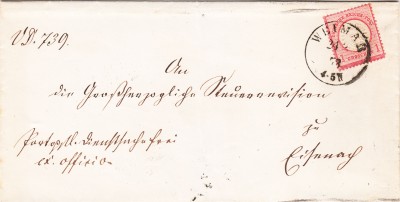 V.D. 739.
WEIMAR
72
4-5N
An
die Großherzogliche Steuerrevision
zu
Eisenach
Portopfl. Dienstsache frei
ex officio